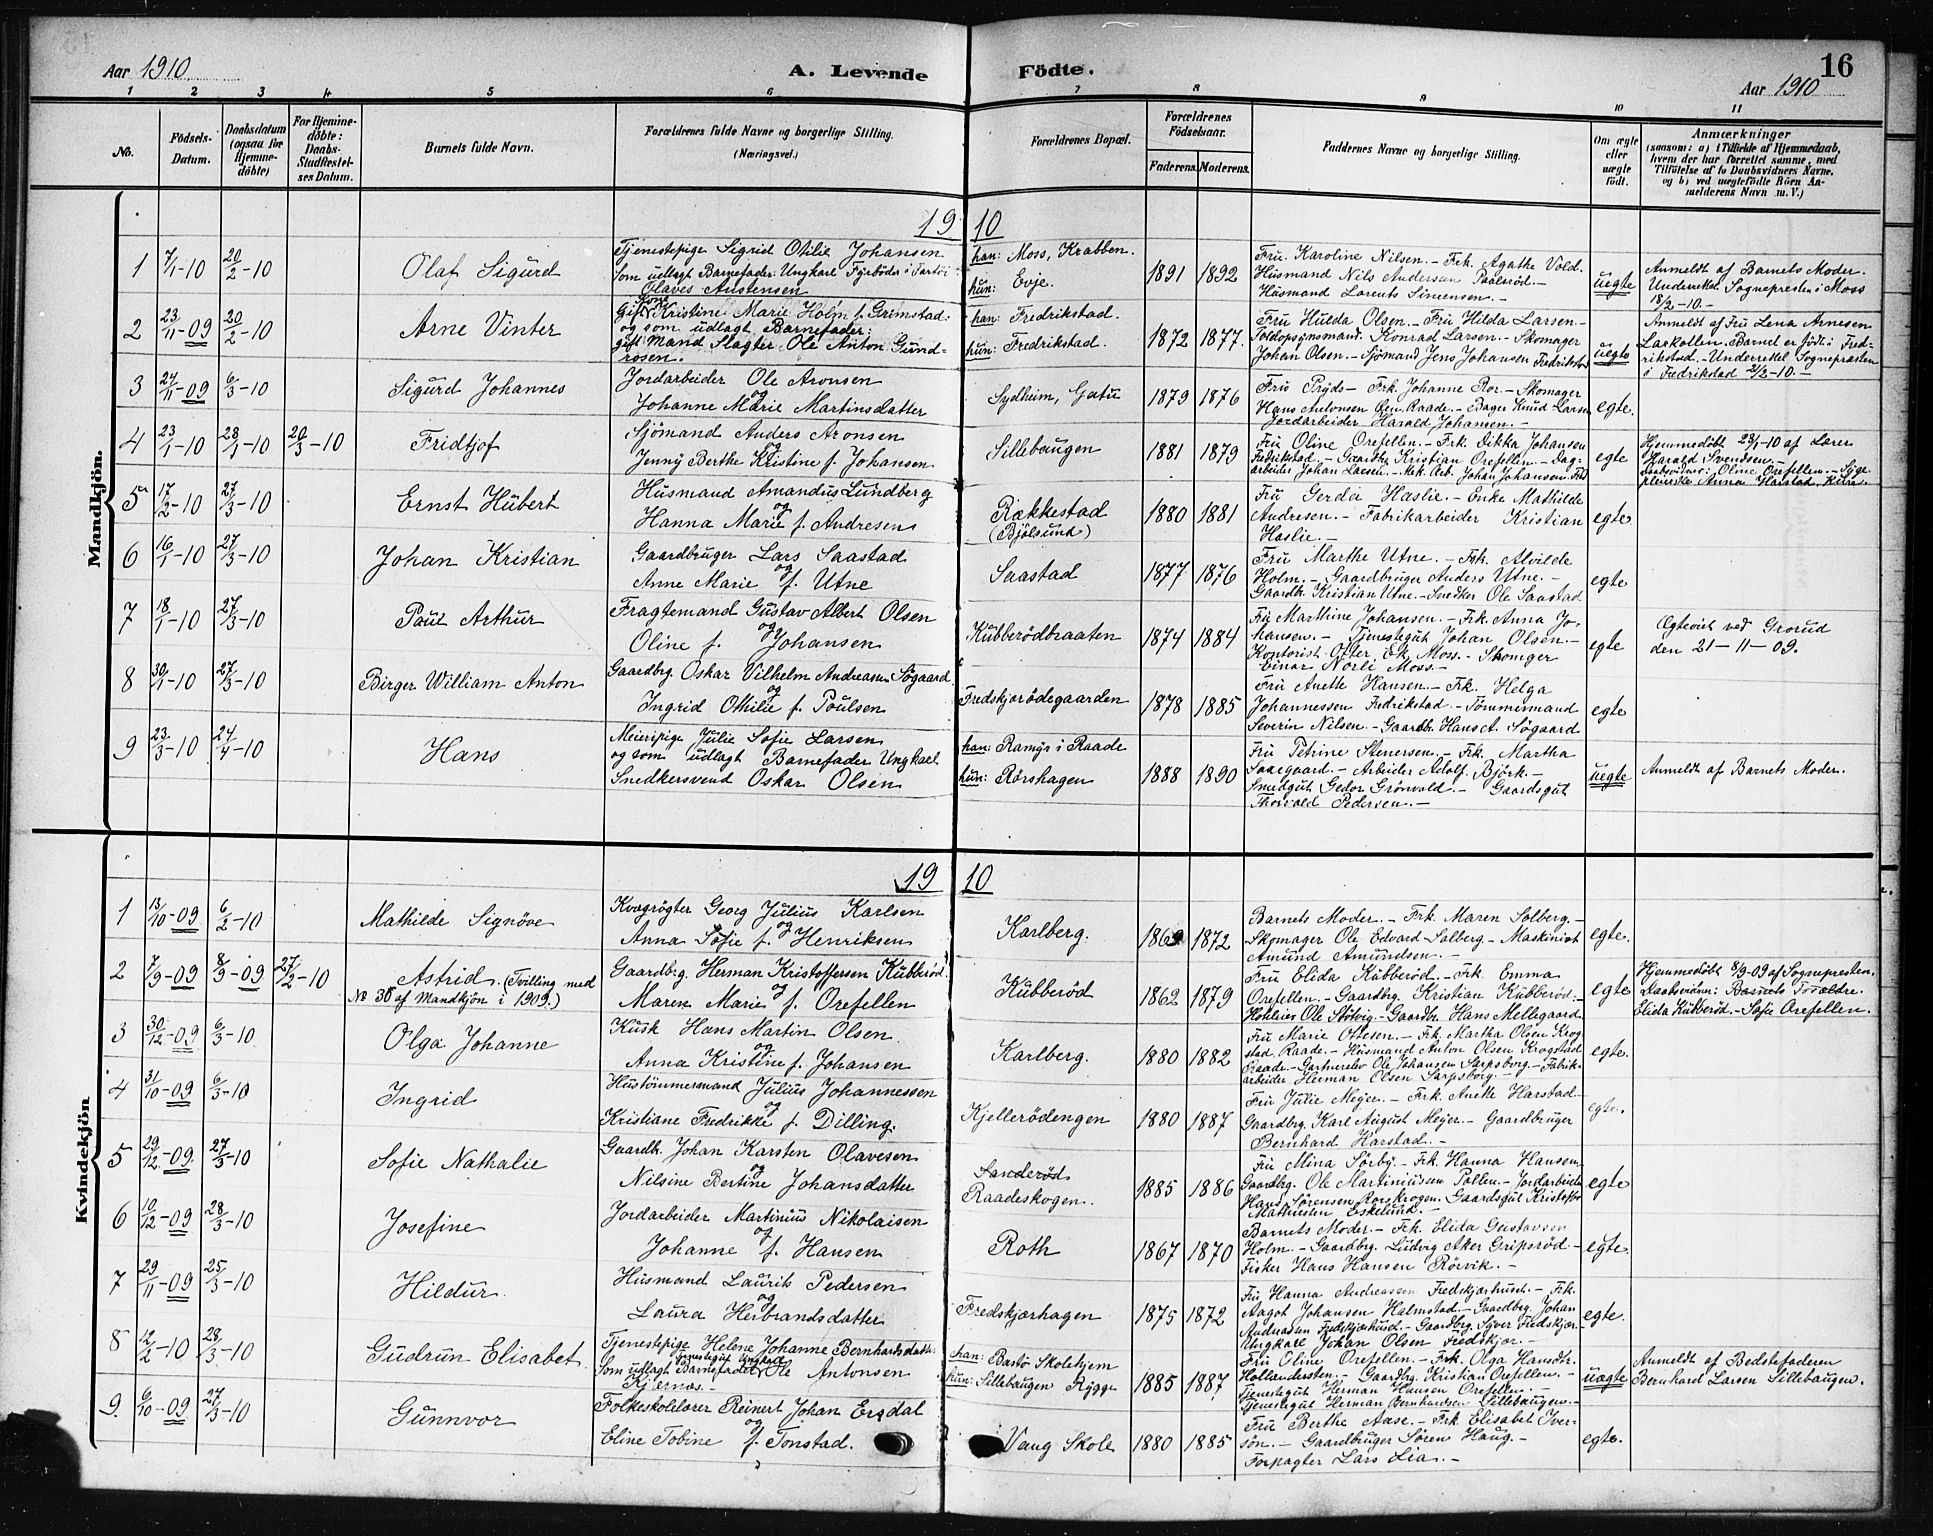 Aar 1910
A. Levende Födte.
16
Aar 1910
1 2 3 4 5 6 7 8 9 10 11
No.
Födsels-Datum.
Daabsdatum (ogsaa for Hjemmedöbte)
For Hjemmedöbte: Daabs-Stadfæstelses Datum.
Barnets fulde Navn.
Forældrenes fulde Navne og borgerlige Stilling. (Næringsvei.)
Forældrenes Bopæl.
Forældrenes Födselsaar.
Faderens. Moderens.
Faddernes Navne og borgerlige Stilling.
Om ægte eller uægte födt.
Anmærkninger
(saasom: a) i Tilfælde af Hjemmedaab,
hvem der har forrettet samme, med
Tilföielse af to Daabsvidners Navne,
og b) ved uægtefödte Börn An-
melderens Navn m. V.)
Mandkjön.
1910
1 7/1-10 20/2-10
Olaf Sigurd
Tjenestepige Sigrid Otilie Johansen
Som udlagt Barnefader: Ungkarl Fyrböder
Olaves Austensen
han: Moss, Krabben.
hun: Evje.
1891 1892
Fru Karoline Nilsen.- Frk. Agathe Vold.
Husmand Nils Andersen Paalsröd.-
Husmand Lorents Simensen.-
uegte
Anmeldt af Barnets Moder.
Underrettet Sognepresten i Moss
18/2-10.-
2 23/11-09 20/2-10
Arne Vinter
Gift Kone Kristine Marie Holm f. Grimstad
og som udlagt Barnefader:
gift Mand Slagter Ole Anton Gund-
rosen.
han: Fredrikstad.
hun: Fredrikstad.
1872 1877.
Fru Hulda Olsen.- Fru Hilda Larsen-
Toldopsynsmand. Konrad Larsen.- Skomager
Johan Olsen.- Sjömand Jens Johansen Fredrikstad
uegte
Anmeldt af Fru Lena Arnesen
Larkollen. Barnet er födt i Fred-
rikstad.- Underrettet Sognepræsten
i Fredrikstad 21/2-10.-
3 24/11-09 6/3-10
Sigurd Johannes
Jordarbeider Ole Aronsen
og
Johanne Marie Martinsdatter
Sydheim, Gatu
1879 1876
Fru Pryds- Frk. Johanne Ror.- Skomager
Hans Antonsen Raade.- Bager Knud Larsen
Jordarbeider Harald Johansen.-
egte.
4 23/1-10 28/1-10 20/3-10
Fridtjof
Sjömand Anders Aronsen
og
Jenny Berthe Kristine f. Johansen
Sillebaugen
1881 1879
Fru Oline Orefellen.- Frk. Dikka Johansen
Fredrikstad.- Gaardbr. Kristian Orefellen.- Dag-
arbeider Johan Larsen.- Mek. Arb. Johan Johansen.
egte
Hjemmedöbt 23/1-10 af Lærer
Harald Svendsen.-
Daabsvidner: Oline Orefellen.- Syge-
pleierske Anna Harstad,
5 17/2-10 27/3-10
Ernst Hubert
Husmand Amandus Lundberg
og
Hanna Marie f. Andresen
Rækkestad
(Bjölsund)
1880 1881
Fru Gerda Haslie.- Enke Mathilde
Andresen.- Fabrikarbeider Kristian
Haslie.-
egte.
6 16/1-10 27/3-10
Johan Kristian
Gaardbruger Lars Saastad
og
Anne Marie f. Utne
Saastad
1877 1876
Fru Marthe Utne.- Frk. Alvilde
Holm.- Gaardbruger Anders Utne.-
Gaardbr. Kristian Utne.- Snedker Ole Saastad
egte
7 18/1-10 27/3-10
Paul Arthur
Fragtemand Gustav Albert Olsen
og
Oline f. Johansen
Kubberödbraaten
1874 1884
Fru Marthine Johansen.- Frk. Anna Jo-
hansen.- Tjenestegut Johan Olsen.-
Kontorist Otter Ek, Moss.- Skomager
Einar Norli Moss.-
egte
Egteviet ved Grorud
den 21-11-09.
8 30/1-10 27/3-10
Birger William Anton
Gaardbrg. Oskar Vilhelm Andreasen Sögaard
og
Ingrid Othilie f. Poulsen
Fredskjorödegaarden
1878 1885
Fru Anette Hansen.- Frk. Helga
Johannessen Fredrikstad.- Tömmermand
Severin Nilsen.- Gaardbr. Hans A. Sögaard
egte
9 23/3-10 24/4-10
Hans
Meieripige Julie Sofie Larsen
og som udlagt Barnefader Ungkarl
Snedkersvend Oskar Olsen
han: Ramyr i Raade
hun: Rörshagen
1888 1890
Fru Petrine Stenersen.- Frk. Martha
Saxegaard.- Arbeider Adolf Björk.-
Smedgut Gedor Grönvold.- Gaardsgut
Thorvald Pedersen.-
uegte
Anmeldt af Barnets Moder.
Kvindekjön
1910
1 13/10-09 6/2-10
Mathilde Signöve
Kvægrögter Georg Julius Karlsen
og
Anna Sofie f. Henriksen
Karlberg.
1869 1872
Barnets Moder.- Frk. Maren Solberg.-
Skomager Ole Edvard Solberg.- Maskinist
Amund Amundsen.-
egte.
2 7/9-09 8/9-09 27/2-10
Astrid. (Tvilling med
No 30 af Mandkjön i 1909.)
Gaardbrg. Herman Kristoffersen Kubberöd
og
Maren Marie f. Orefellen
Kubberöd
1862 1879
Fru Elida Kubberöd.- Frk. Emma
Orefellen.- Gaardbrg. Kristian Kubberöd.-
Ole Stötvig.- Gaardbr. Hans Mellegaard
egte
Hjemmedöbt 8/9-09 af Sognepresten.
Daabsvidner: Barnets Forældre.
Elida Kubberöd.- Sofie Orefellen.
3 30/12-09 6/3-10
Olga Johanne
Kusk Hans Martin Olsen
og
Anna Kristine f. Johansen
Karlberg.
1880 1882
Fru Marie Ottesen.- Frk. Martha Olsen Krog-
stad, Raade.- Husmand Anton Olsen Krogstad
Raade.- Gartnerelev Ole Johansen Sarpsborg.- Fabrik-
arbeider Herman Olsen Sarpsborg.-
egte.
4 31/10-09 6/3-10
Ingrid
Hustömmermand Julius Johannessen
og
Kristiane Fredrikke f. Dilling.
Kjellerödengen
1880 1887
Fru Julie Mejer.- Frk. Anette Harstad-
Gaardbrg. Karl August Mejer.- Gaardbruger
Bernhard Harstad.-
egte.
5 29/12-09. 27/3-10
Sofie Nathalie
Gaardb. Johan Karsten Olavesen
og
Nilsine Bertine Johansdatter
Sanderöd
Raadeskogen.
1885 1886
Fru Mina Sörby.- Frk. Hanna Hansen.
Gaardbrg. Ole Martiniussen Pollen.- Jordarbeider
Hans Sörensen Rorskrogen. Gaardsgut Kristoffer
Mathiesen Eskelund.-
egte
6 10/12-09 28/3-10
Josefine
Jordarbeider Martinius Nikolaisen
og
Johanne f. Hansen
Roth
1867 1870
Barnets Moder.- Frk. Elida Gustavsen
Holm.- Gaardbrg. Ludvig Aker Gripsröd-
Fisker Hans Hansen Rörvik.-
egte.
7 29/11-09 25/3-10
Hildur
Husmand Laurits Pedersen
og
Laura Herbrandsdatter
Fredskjærhagen
1875 1872
Fru Hanna Andreasen Fredskjærhuset.- Frk.
Aagot Johansen Halmstad.- Gaardbrg. Johan
Andreasen Fredskjærhuset.- Gaardbrg. Syver Fredskjær.-
Ungkarl Johan Olsen Fredskjær.-
egte.
8 12/2-10 28/3-10
Gudrun Elisabet
Tjenestepige Helene Johanne Bernhardsdatter
Som udlagt Barnefader Tjenestegut Ungkarl Ole Antonsen
Kjærnes.-
han: Bastö Skolehjem
hun: Sillebaugen Rygge
1885 1887
Fru Oline Orefellen.- Frk. Olga Hansdtr.
Hollendersten.- Gaardbrg. Kristian Orefellen.-
Tjenestegut Herman Hansen Orefellen.-
Tjenestegut Herman Bernhardsen Sillebaugen.-
uægte
Anmeldt af Bedstefaderen
Bernhard Larsen Sillebaugen.
9. 6/10-09 27/3-10
Gunnvor
Folkeskolelærer Reinert Johan Ersdal
og
Eline Tobine f. Tonstad.
Vang Skole
1880 1885
Fru Berthe Aase.- Frk. Elisabet Iver-
sön.- Gaardbruger Sören Haug.-
Forpagter Lars Lia.-
egte.